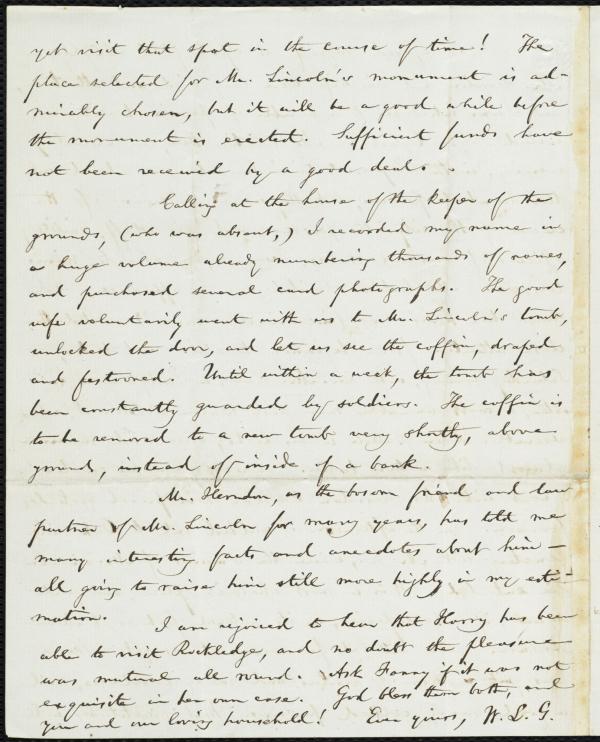 yet visit that spot in the course of time! The
place selected for Mr. Lincoln's monument is ad-
mirably chosen, but it will be a good while before
the monument is erected. Sufficient funds have
not been received by a good deal.
Calling at the house of the keeper of the
grounds, (who was absent,) I recorded my name in
a huge volume already numbering thousands of names,
and purchased several card photographs. The good
wife voluntarily went with us to Mr. Lincoln's tomb,
unlocked the door, and let us see the coffin, draped
and festooned. Until within a week, the tomb has
been constantly guarded by soldiers. The coffin is
to be removed to a new tomb very shortly, above
ground, instead of inside of a bank.
Mr. Herndon, as the bosom friend and law
partner of Mr. Lincoln for many years, has told me
many interesting facts and anecdotes about him—
all going to raise him still more highly in my esti-
mation.
I am rejoiced to hear that Harry has been
able to visit Rockledge, and no doubt the pleasure
was mutual all round. Ask Fanny if it was not
exquisite in her own case. God bless them both, and
you and our loving household! Ever yours, W. L. G.